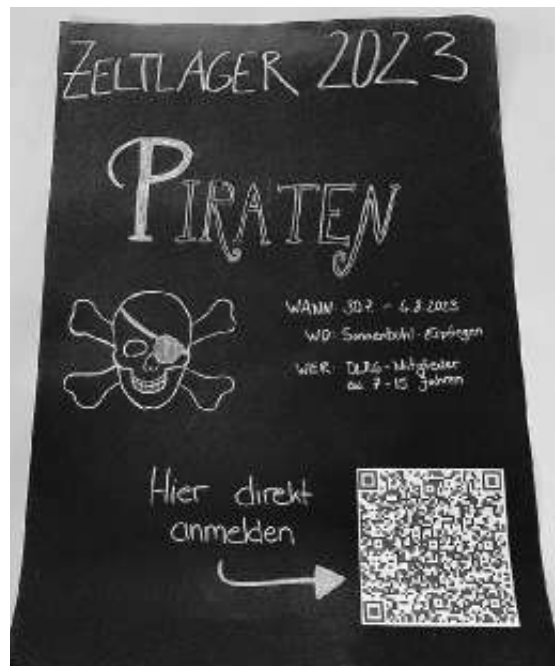 ZELTLAGER 2023
PIRATEN
WANN: 30.7 - 6.8.2023
WO: Sonnenbühl-Erpfingen
WER: DLRG-Mitglieder
7-15 Jahren
Hier direkt
anmelden